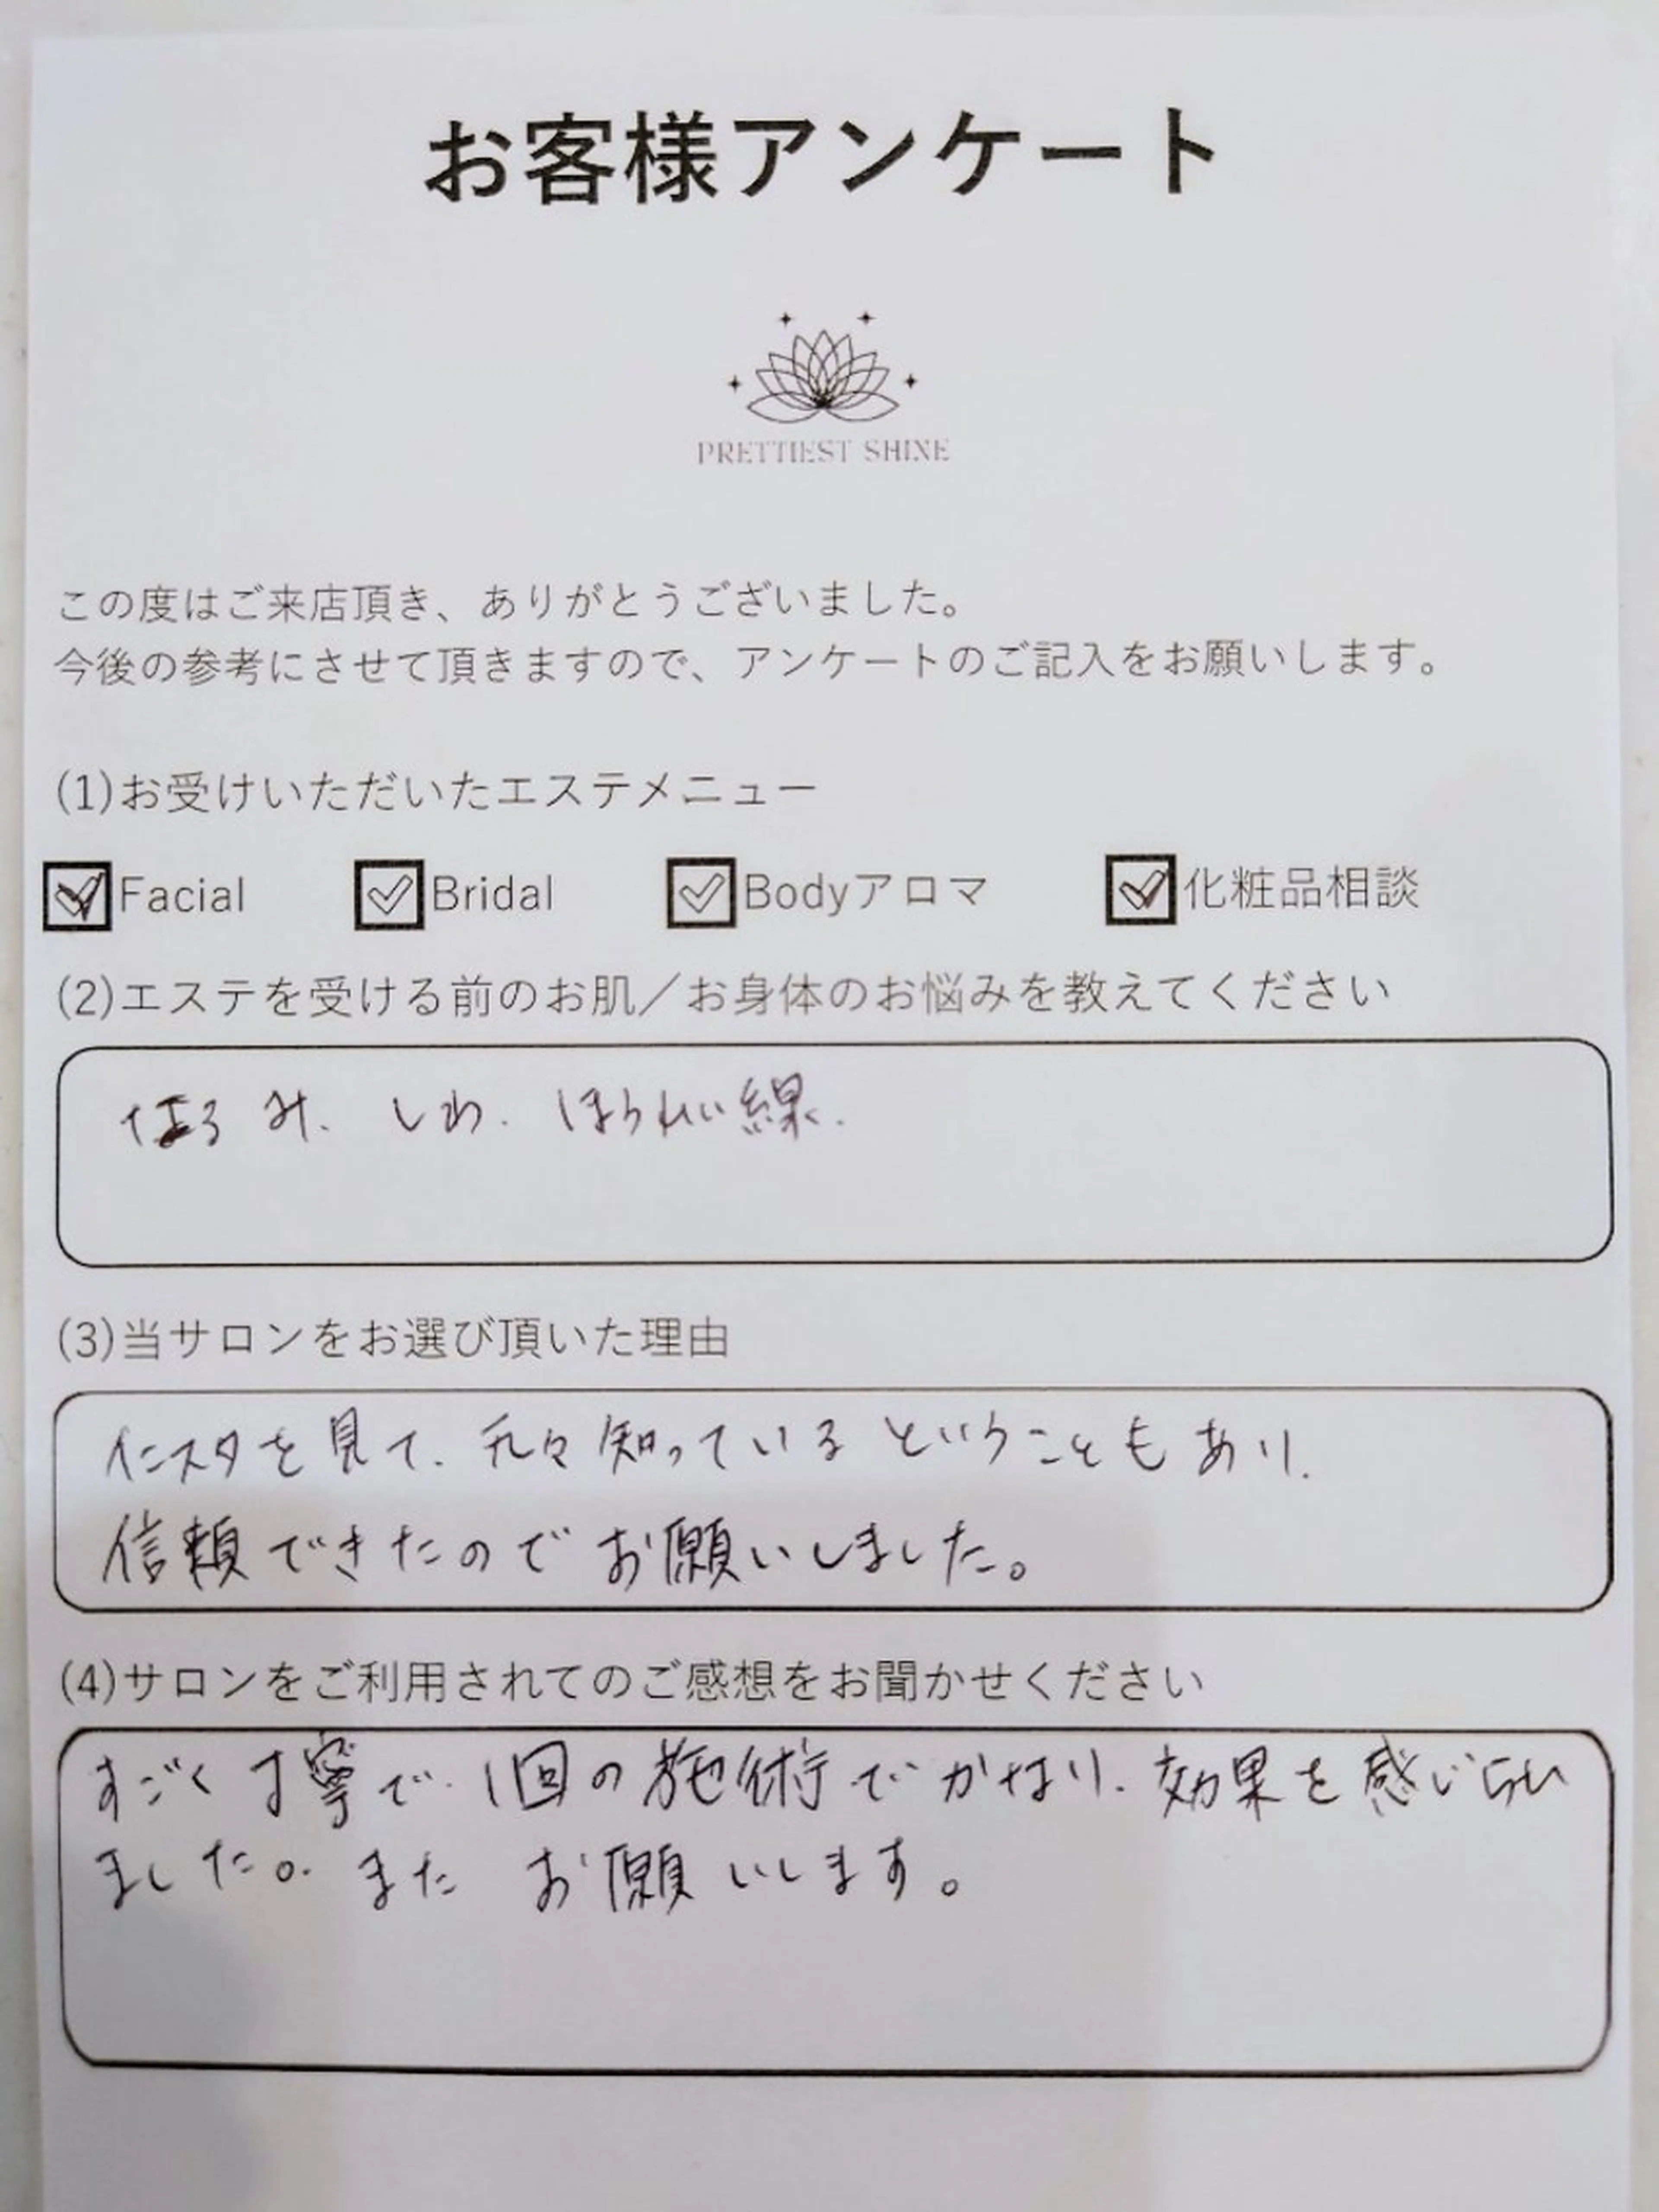 お客様アンケート
PRETTIEST SHINE
この度はご来店頂き、ありがとうございました。
今後の参考にさせて頂きますので、アンケートのご記入をお願いします。
(1)お受けいただいたエステメニュー
Facial Bridal Bodyアロマ 化粧品相談
(2)エステを受ける前のお肌／お身体のお悩みを教えてください
み、しわ、ほうれい線、
(3)当サロンをお選び頂いた理由
インスタを見て、元々知っているということもあり、
信頼できたのでお願いしました。
(4)サロンをご利用されてのご感想をお聞かせください
すごく丁寧で、1回の施術でかなり、効果を感じらい
ました。また お願いします。